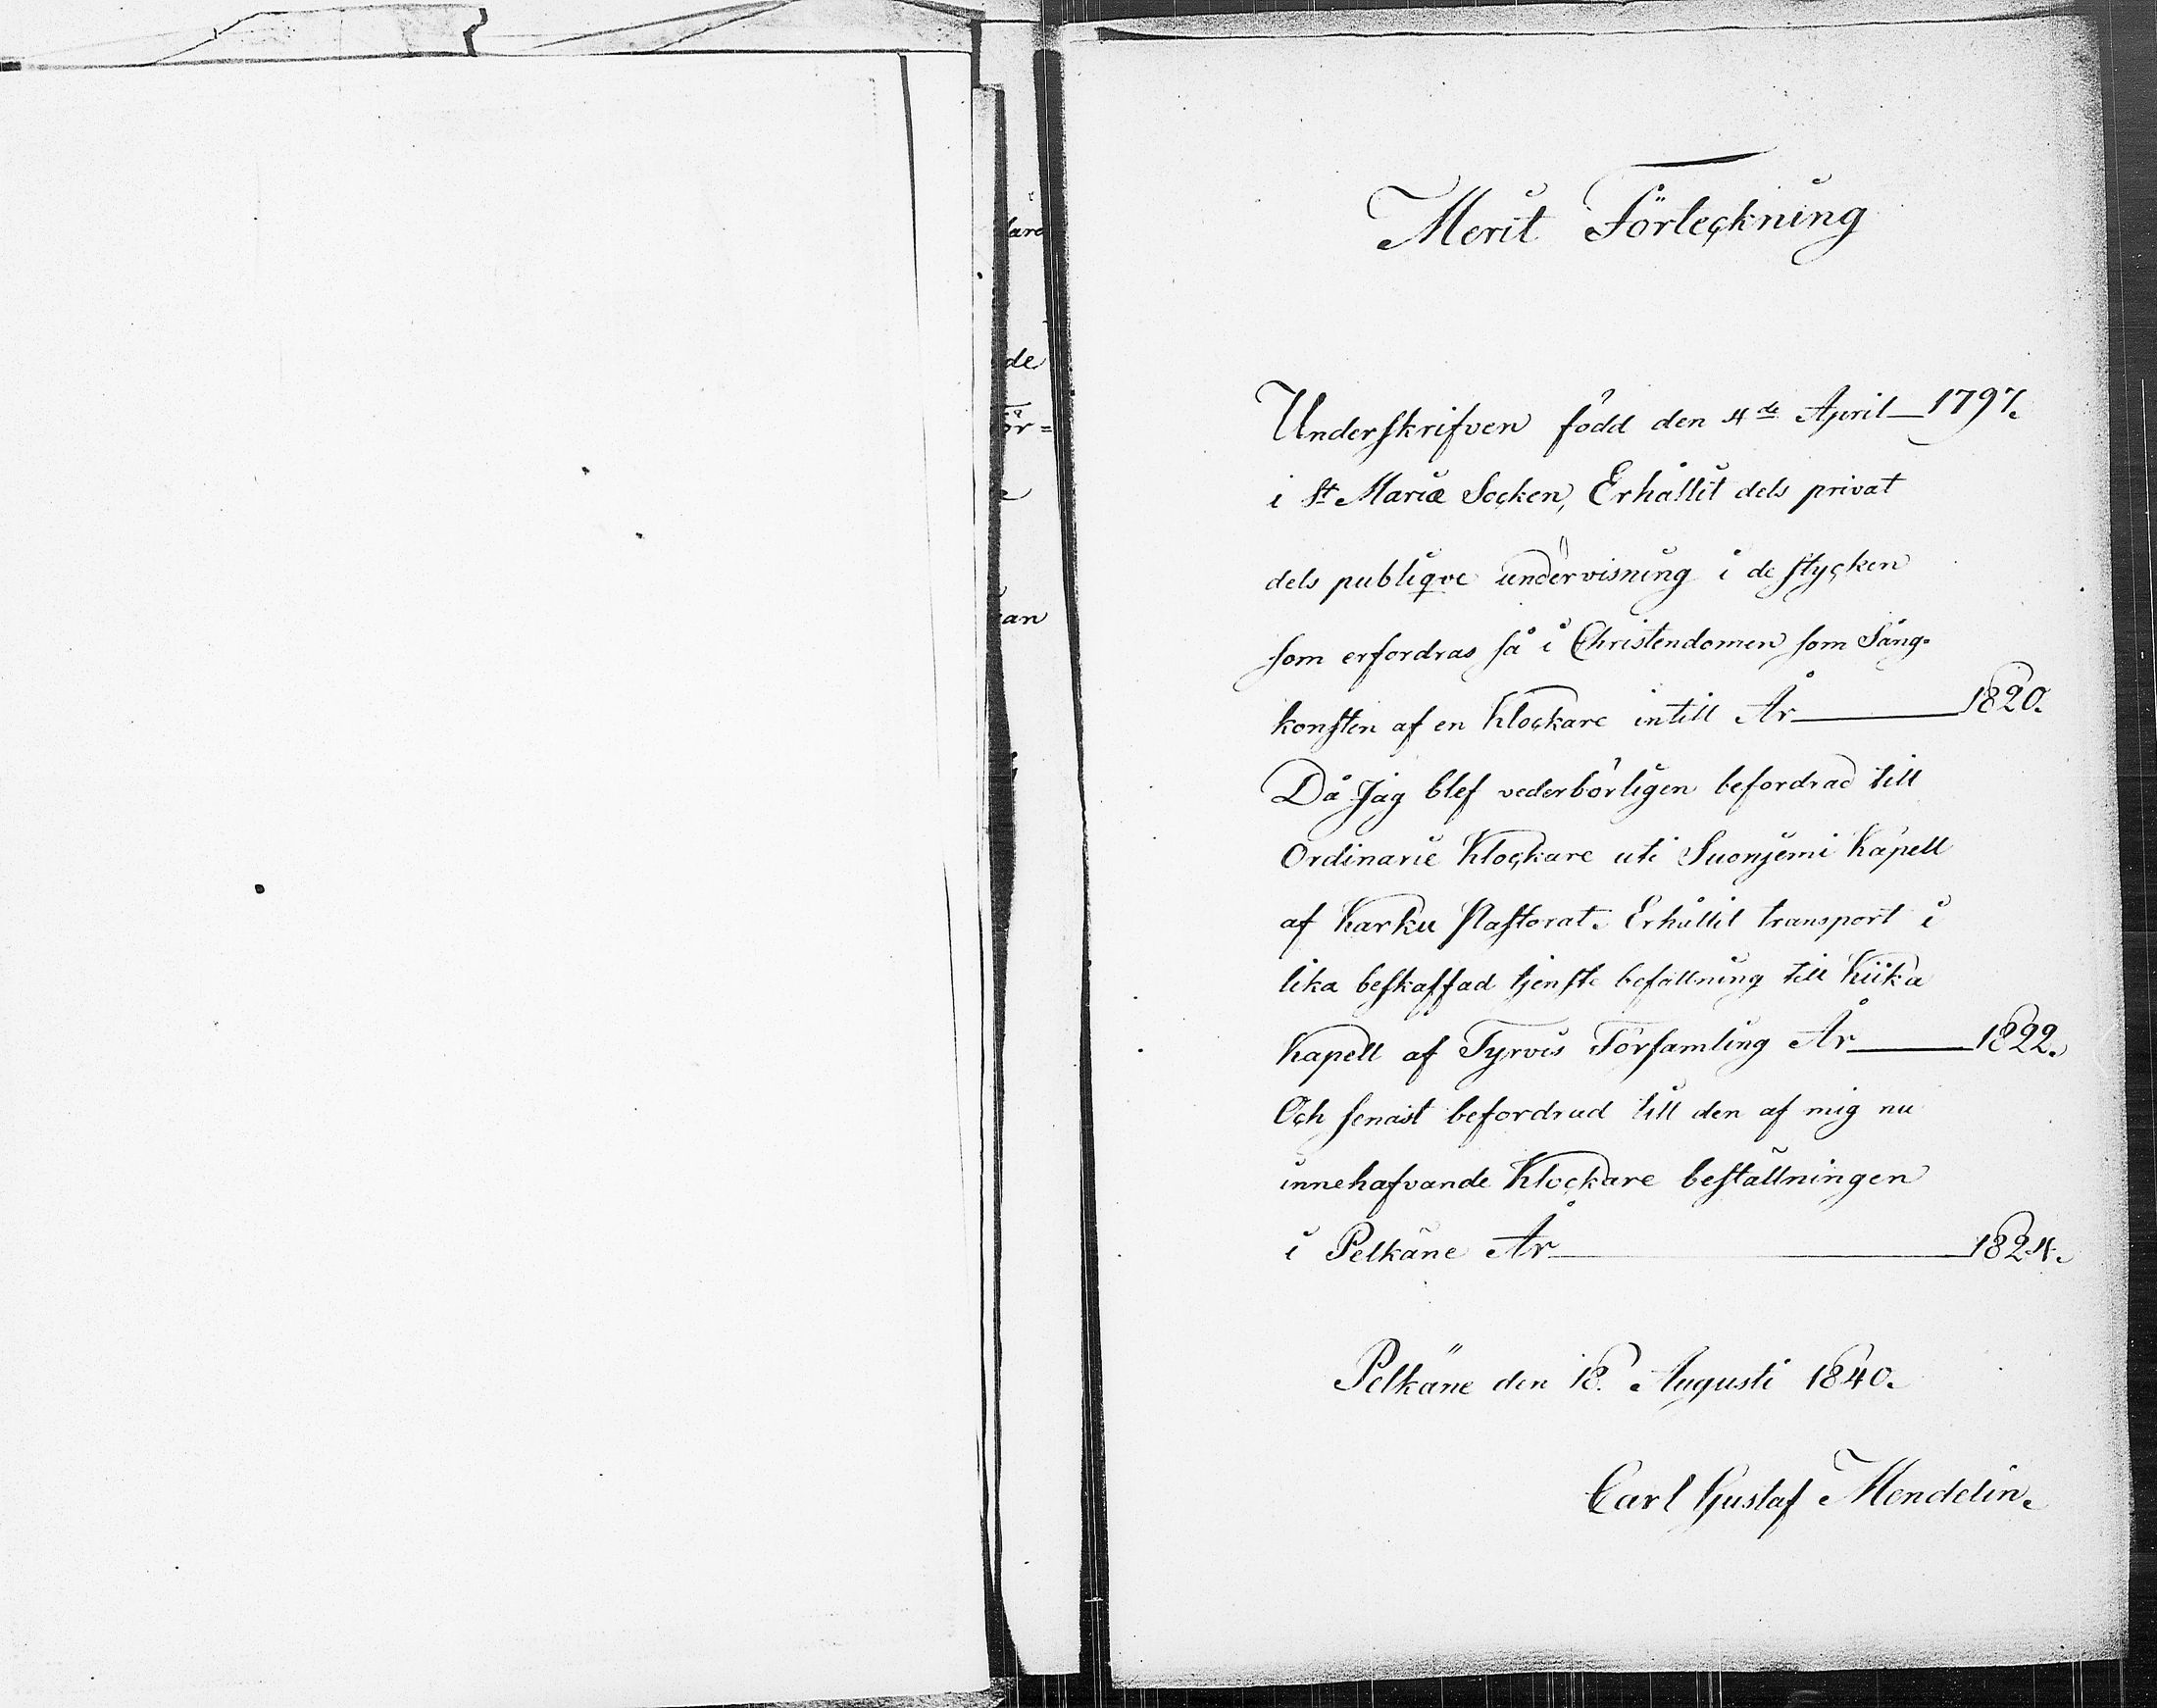 Merit Förteckning
Underskrifven född den 4de April 1797.
i St Mariæ Socken, Erhållit dels privat
dels publiqve undervisning i de stycken
som erfordras så i Christendomen som Sång-
konsten af en Klockare intill År 1820.
Då Jag blef vederbörligen befordrad till
Ordinarie Klockare uti Suonjemi Kapell
af Karku Pastorat. Erhållit transport i
lika beskaffad tjenste befattning till Kiika
Kapell af Tyrvis Församling År 1822.
Och senast befordrad till den af mig nu
innehafvande Klockare beställningen
i Pelkäne År 1824.
Pelkäne den 18. Augusti 1840.
Carl Gustaf Mendelin.